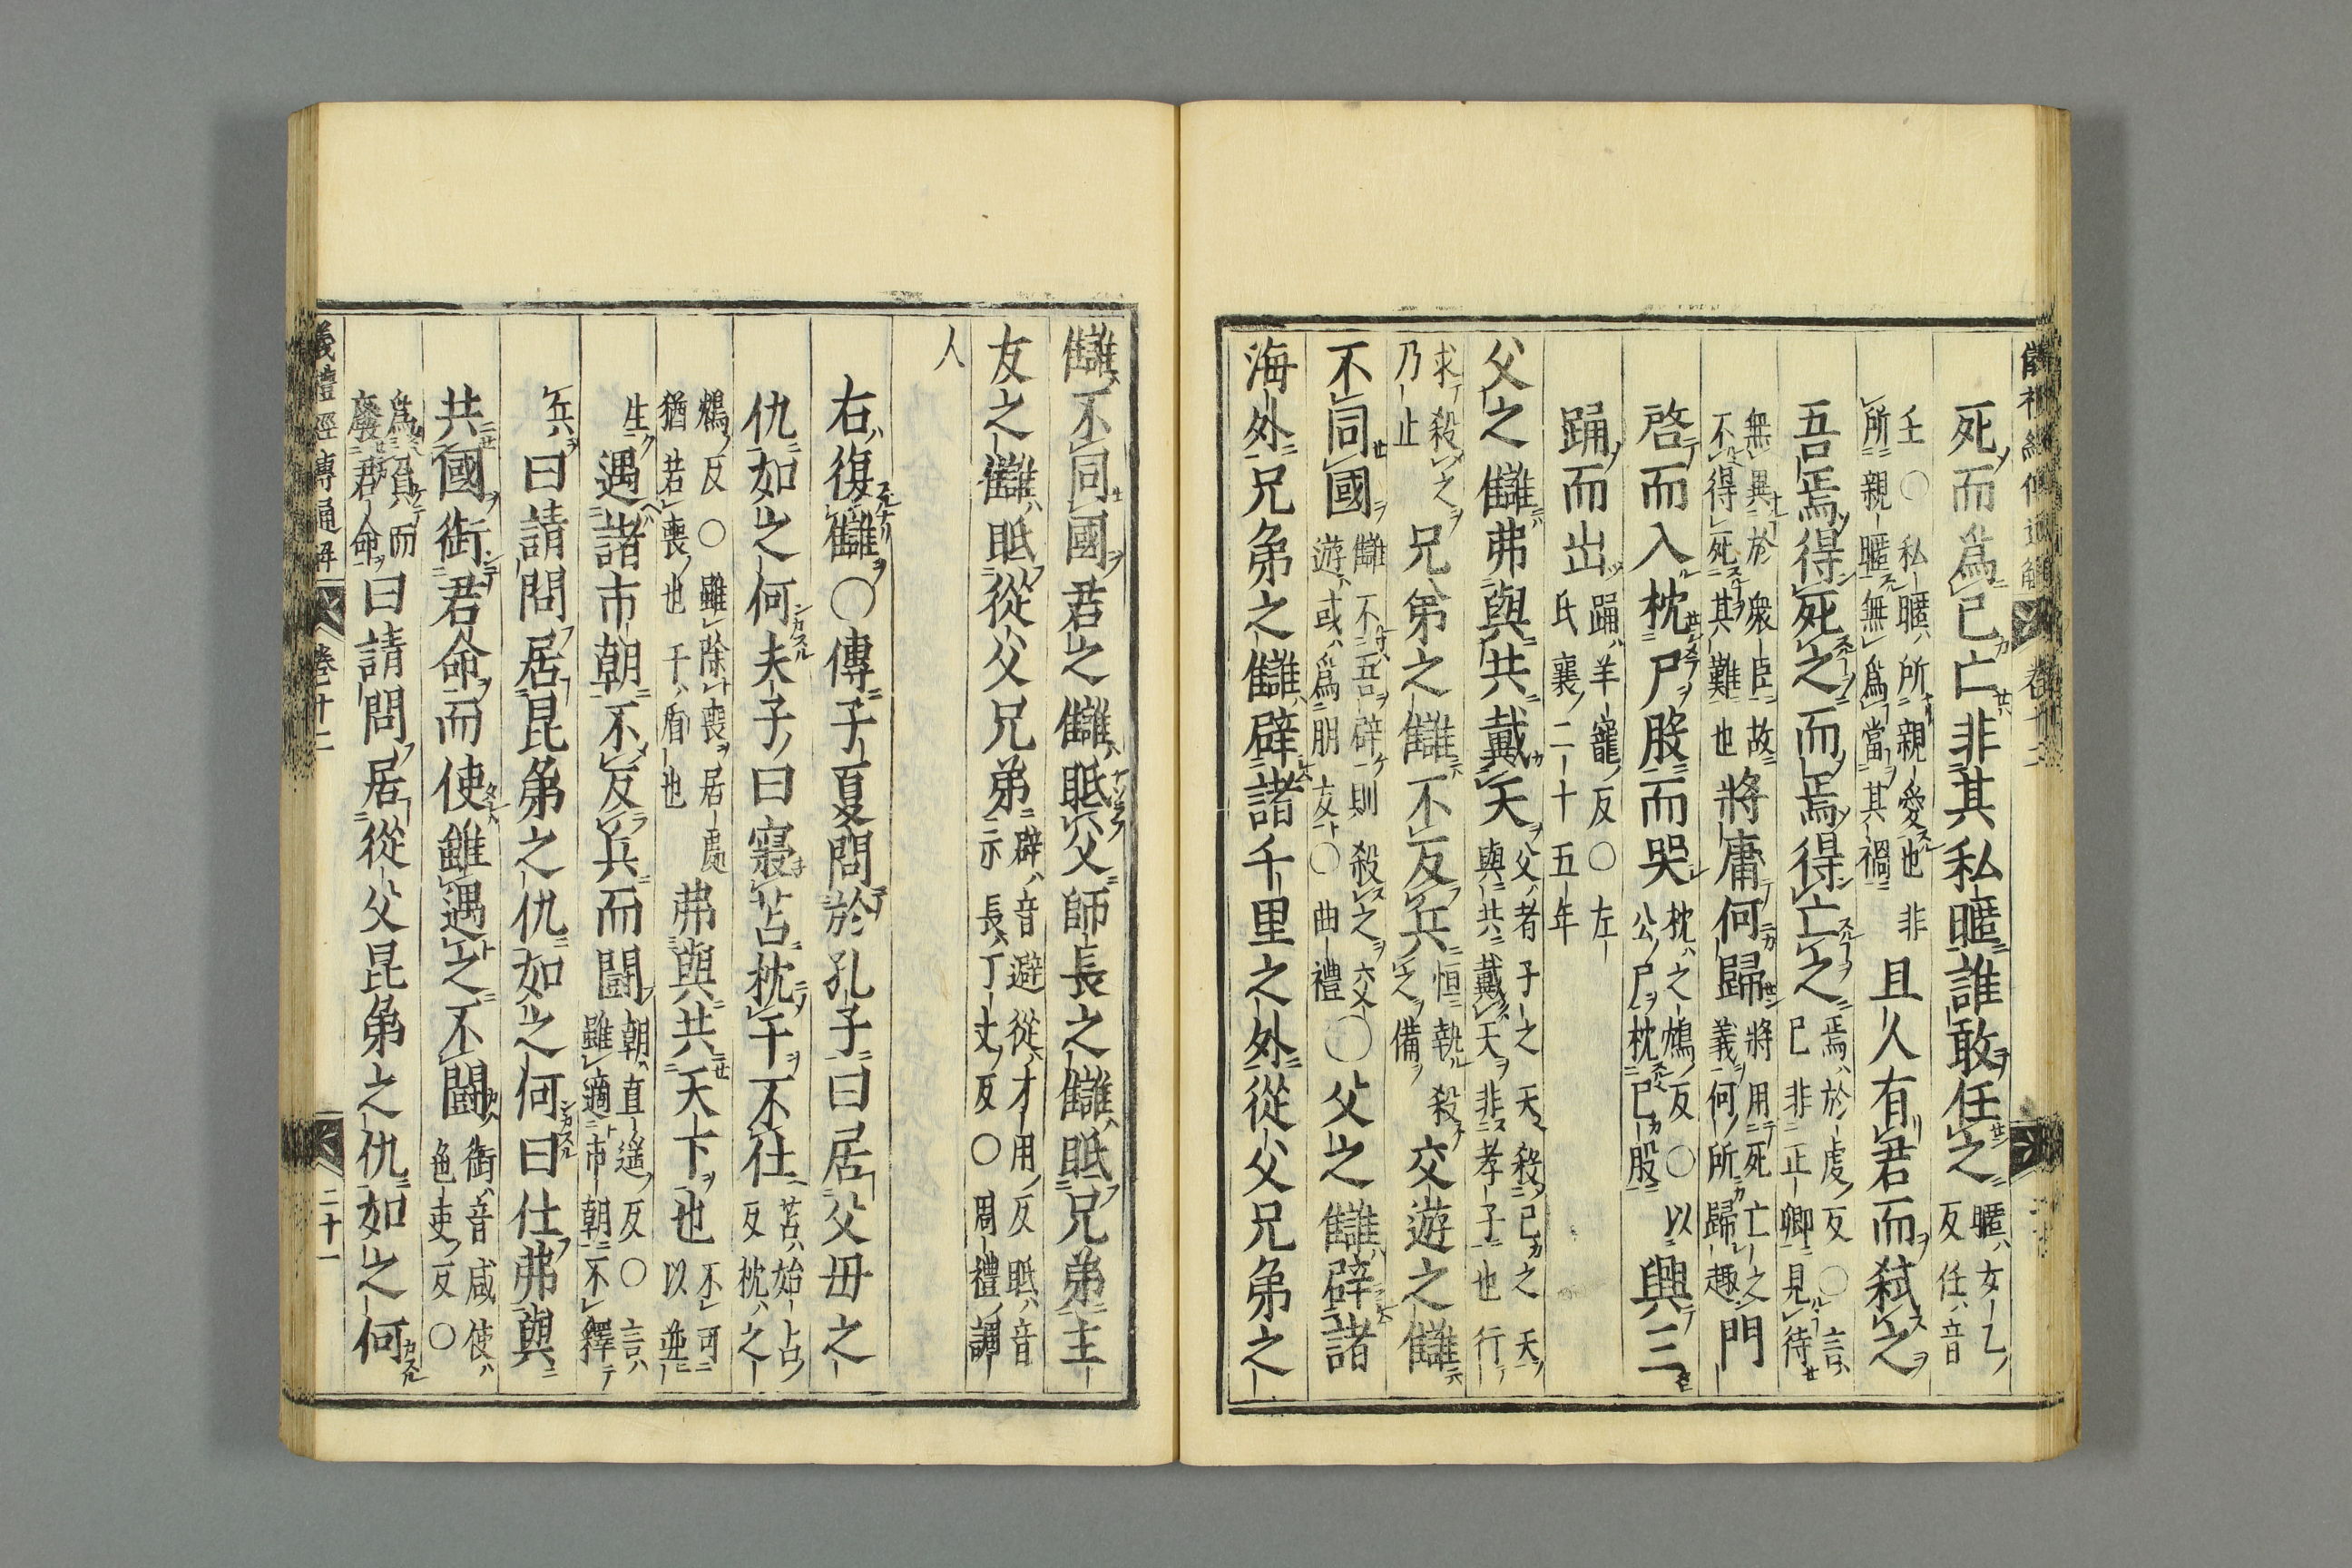 儀禮經傳通解 卷十二
死而爲己亡非其私暱誰敢任之暱女乙反任音
壬○私暱所親愛也非所親暱無爲當其禍且人有君而弑之
吾焉得死之而焉得亡之焉於虔反○言己非正卿見待
無異於衆臣故不得死其難也將庸何歸將用死亡之義何所歸趣門
啓而入枕尸股而哭枕之鴆反○以公尸枕己股興三
踊而出踊羊寵反○左氏襄二十五年
父之讎弗與共戴天父者子之天殺己之天與共戴天非孝子也行
求殺之乃止兄弟之讎不反兵恒執殺之備交遊之讎
不同國讎不吾辟則殺之交遊或爲朋友○曲禮○父之讎辟諸
海外兄弟之讎辟諸千里之外從父兄弟之
讎不同國君之讎眡父師長之讎眡兄弟主
友之讎眡從父兄弟辟音避從才用反眡音示長丁丈反○周禮調
人
右復讎○傳子夏問於孔子曰居父母之
仇如之何夫子曰寢苫枕干不仕苫始占反枕之
鴆反○雖除喪居處猶若喪也干盾也弗與共天下也不可以並
生遇諸市朝不反兵而鬭朝直遥反○言雖適市朝不釋
兵曰請問居昆弟之仇如之何曰仕弗與
共國銜君命而使雖遇之不鬭銜音咸使色吏反○
爲負而廢君命曰請問居從父昆弟之仇如之何
儀禮經傳通解 卷十二 二十一